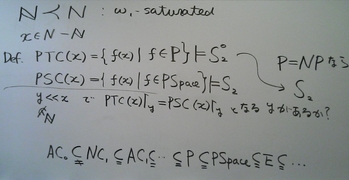 ℕ ≺ N : ω₁-saturated
x ∈ N − ℕ
Def. PTC(x) = {f(x) | f ∈ P} ⊨ S₂⁰
P = NP なら
PSC(x) = {f(x) | f ∈ PSpace} ⊨ S₂
S₂
y ≪ x で PTC(x)|y = PSC(x)|y となる y があるか?
AC₀ ⊊ NC₁ ⊆ AC₁ ⊆ ‥ ⊆ P ⊆ PSpace ⊆ E ⊆ …